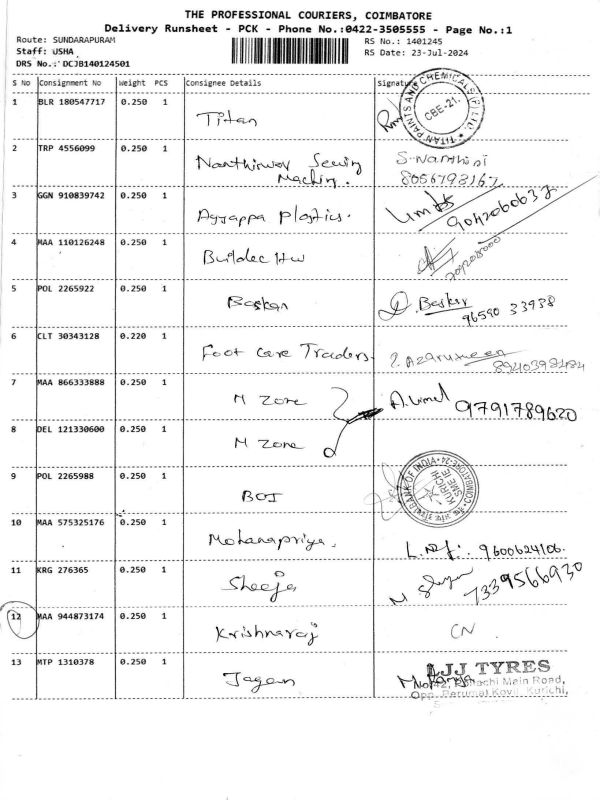 THE PROFESSIONAL COURIERS, COIMBATORE
Delivery Runsheet - PCK - Phone No.:0422-3505555 - Page No.:1
Route: SUNDARAPURAM
RS No.: 1401245
Staff: USHA
RS Date: 23-Jul-2024
DRS No.: DCJB140124501
S No Consignment No Weight PCS Consignee Details Signature
1 BLR 180547717 0.250 1 Titan
TITAN PAINTS AND CHEMICALS (P) LTD.
CBE-21.
2 TRP 4556099 0.250 1 Sewing S. Nanthini
8056798167
3 GGN 910839742 0.250 1 Ayyappa Plastics.
4 MAA 110126248 0.250 1 Buildec Hw
5 POL 2265922 0.250 1 Baskar D. Baskar
96590 33938
6 CLT 30343128 0.220 1 Foot care Traders.
8940398484
7 MAA 866333888 0.250 1 M Zone
9791789620
8 DEL 121330600 0.250 1 M Zone
9 POL 2265988 0.250 1 BOI
BANK OF INDIA
KURICHI
COIMBATORE-24
10 MAA 575325176 0.250 1 Mohanapriya. 9600624106.
11 KRG 276365 0.250 1 Sheeja 7339566930
12 MAA 944873174 0.250 1 Krishnaraj CN
13 MTP 1310378 0.250 1 Jagan
JJ TYRES
Main Road,
Opp. Perumal Kovil, Kurichi,